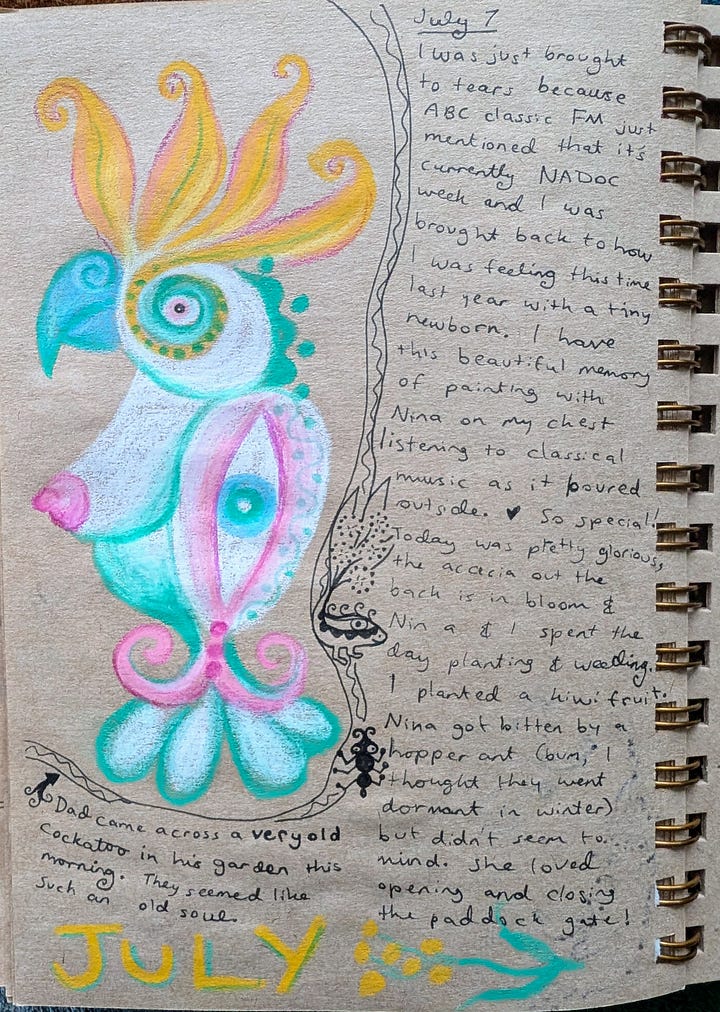 July 7
I was just brought
to tears because
ABC classic FM just
mentioned that it's
currently NADOC
week and I was
brought back to how
I was feeling this time
last year with a tiny
newborn. I have
this beautiful memory
of painting with
Nina on my chest
listening to classical
music as it poured
outside. ♥ So special!
Today was pretty glorious,
the accacia out the
back is in bloom &
Nina & I spent the
day planting & weeding.
I planted a kiwi fruit.
Nina got bitten by a
hopper ant (bum, I
thought they went
dormant in winter)
but didn't seem to
mind. She loved
opening and closing
the paddock gate!
Dad came across a very old
cockatoo in his garden this
morning. They seemed like
such an old soul.
JULY